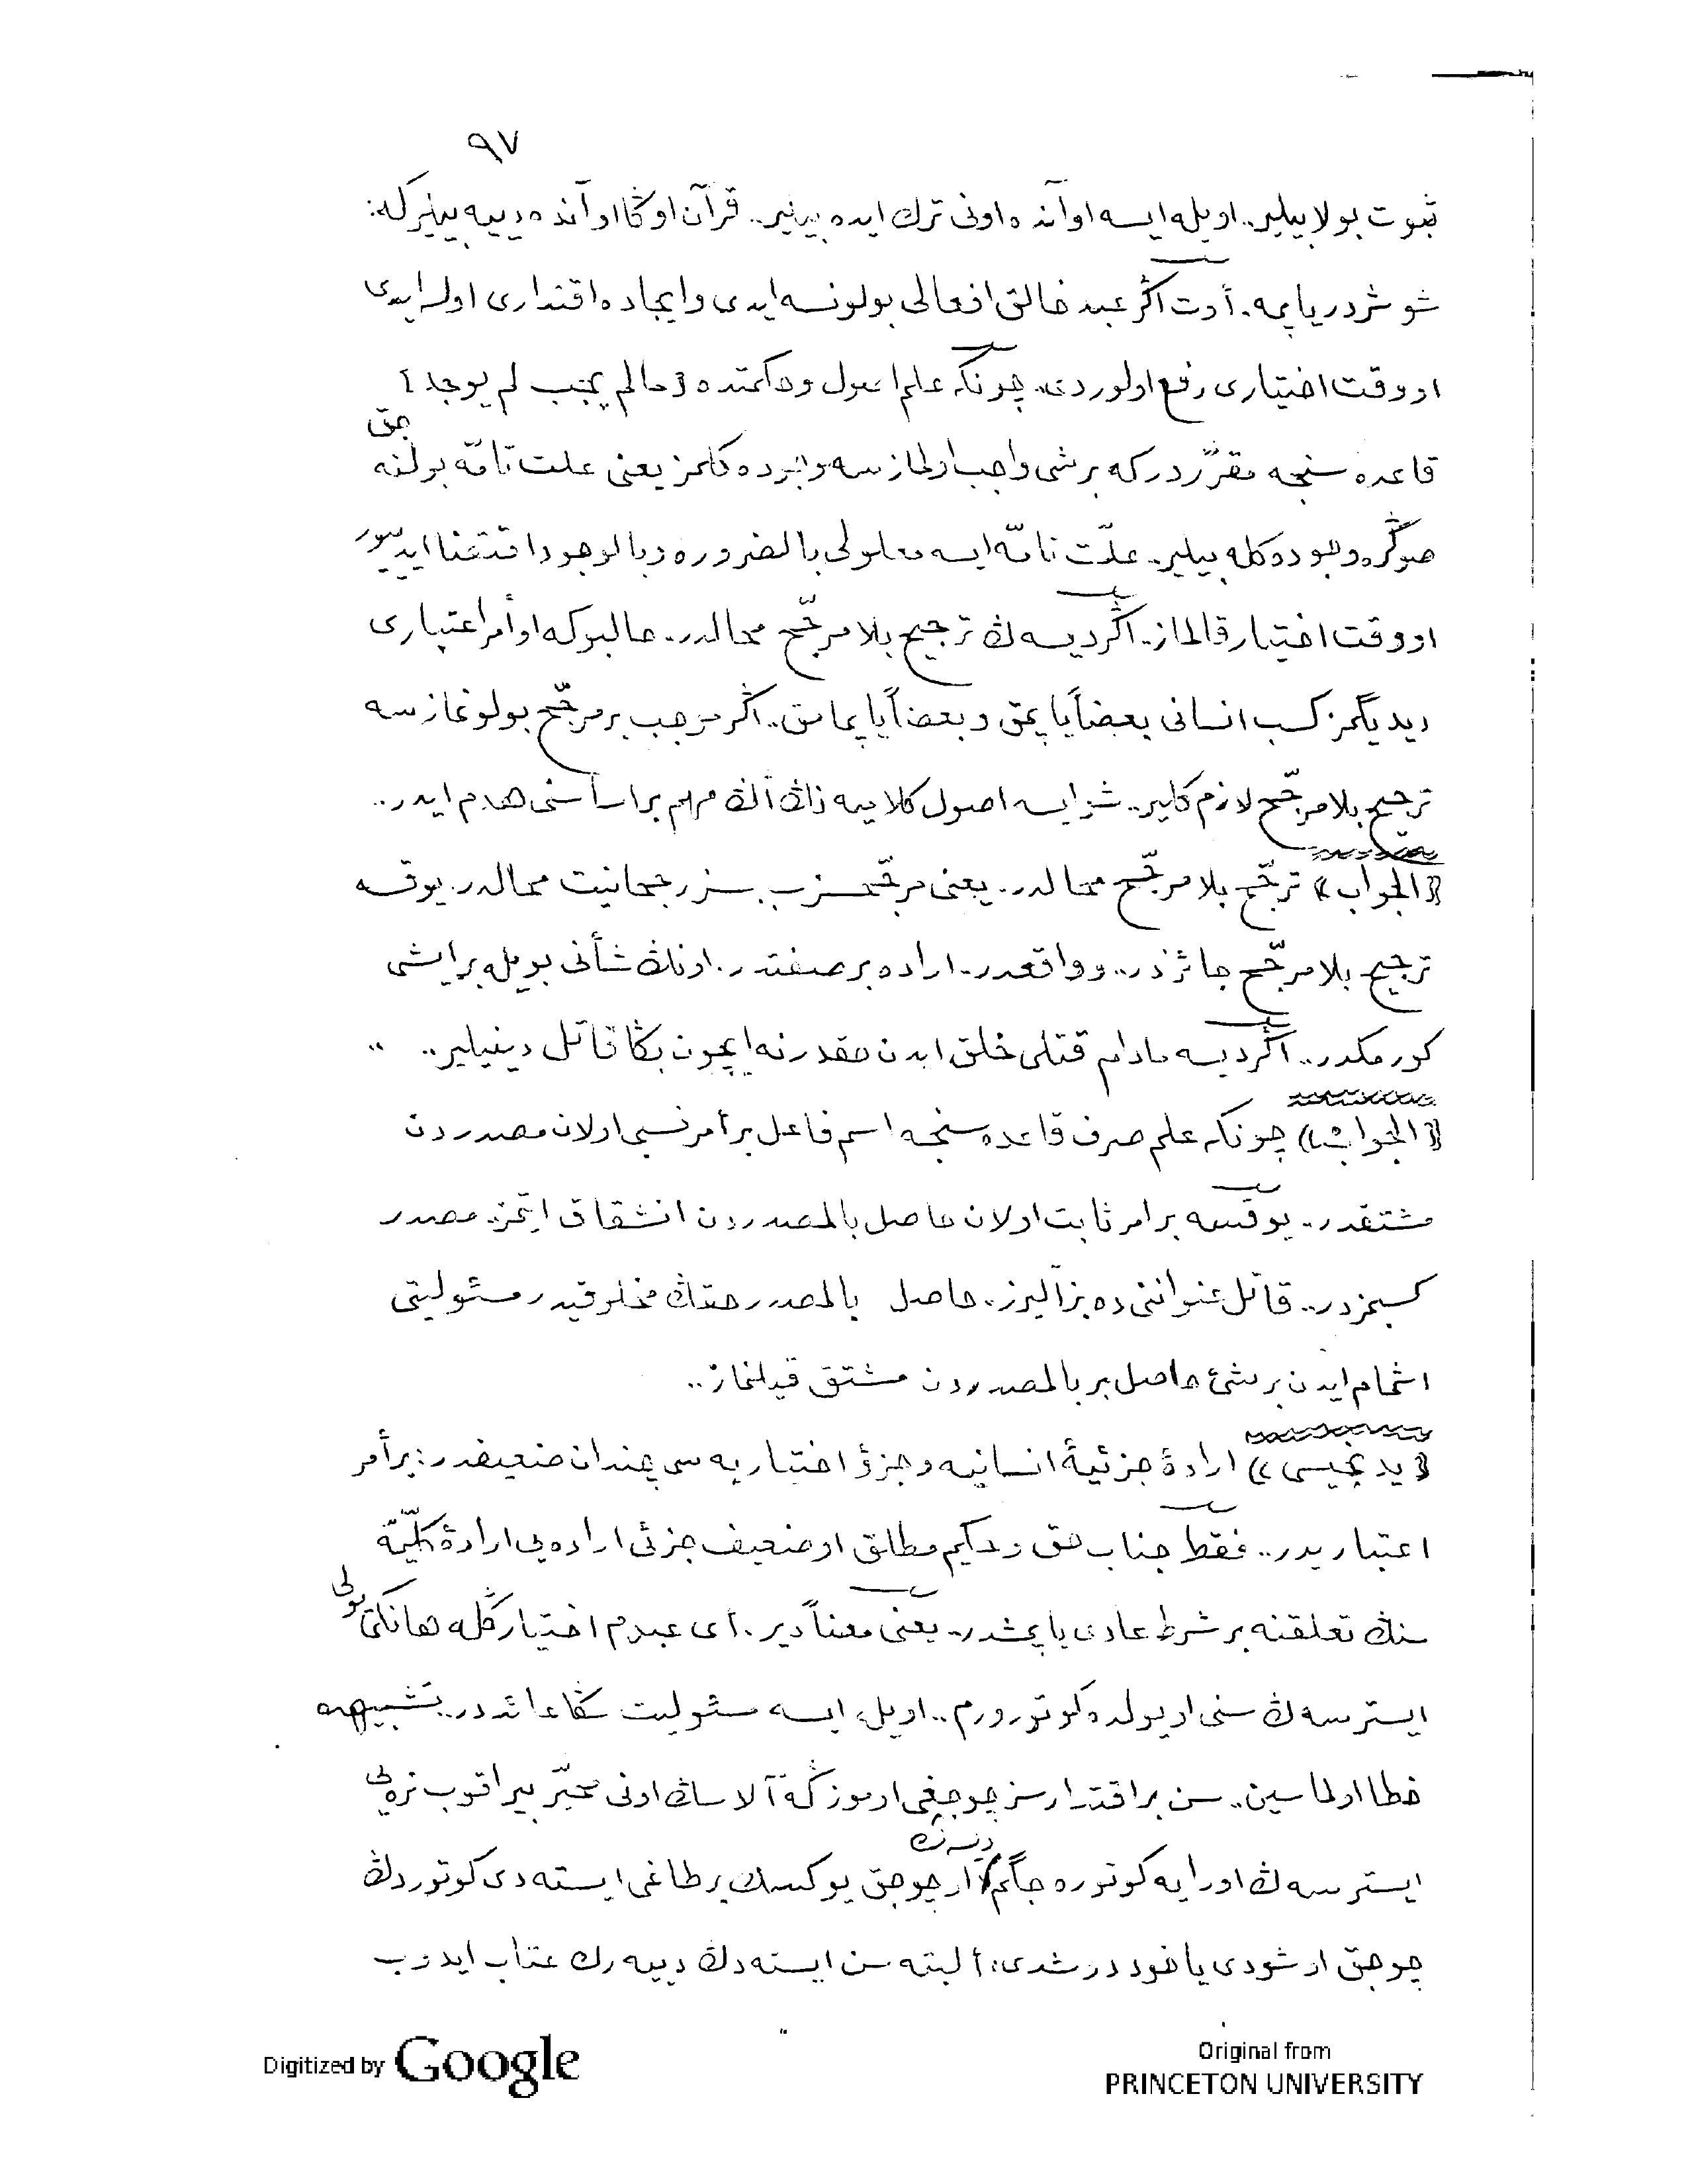 ٩٧
ثبوت بولا بیلیر.. اویله ایسه او آنده اونی ترك ایده بیلیر.. قرآن اوڭا او آنده دییه بیلیر که:
شو شردر یاپمه. أوت اگر عبد خالق افعالی بولونسه ایدی و ایجاده اقتداری اولسه ایدی
او وقت اختیاری رفع اولوردی. چونکه علم اصول و حکمتده [ما لم یجب لم یوجد]
قاعده سنجه مقرّردر که بر شی واجب اولمازسه وجوده کلمز یعنی علت تامّه بولنه جق
صوڭره وجوده کله بیلیر. علّت تامّه ایسه معلولی بالضروره و بالوجوب اقتضا ایدییور
او وقت اختیار قالماز. اگر دیسه ڭ ترجیح بلا مرجّح محالدر. حالبوکه او أمر اعتباری
دیدیگمز کسب انسانی بعضاً یاپمق و بعضاً یاپمامق.. اگر موجب بر مرجّح بولونمازسه
ترجیح بلا مرجّح لازم کلیر.. شو ایسه اصول کلامیه نڭ اڭ مهم بر اساسنی هدم ایدر..
«الجواب» ترجّح بلا مرجّح محالدر. یعنی مرجّحسز سببسز رجحانیت محالدر. یوقسه
ترجیح بلا مرجّح جائزدر.. و واقعدر. اراده بر صفتدر. اونڭ شأنی بویله بر ایشی
کورمکدر.. اگر دیسه مادام قتلی خلق ایدن حقدر نه ایچون بڭا قاتل دینیلیر.. ..
«الجواب» چونکه علم صرف قاعده سنجه اسم فاعل بر أمر نسبی اولان مصدردن
مشتقدر.. یوقسه بر امر ثابت اولان حاصل بالمصدردن انشقاق ایتمز. مصدر
کسبمزدر.. قاتل عنواننی ده بز آلیرز. حاصل بالمصدر حقڭ مخلوقیدر مسئولیتی
اشمام ایدن بر شئ حاصل بر بالمصدردن مشتق قیلنماز..
«یدنجیسی» ارادۀ جزئیۀ انسانیه و جزؤ اختیاریه سی چندان ضعیفدر: بر أمر
اعتباریدر.. فقط جناب حق و حکیم مطلق او ضعیف جزئی اراده یی ارادۀ کلّیّه
سنڭ تعلقنه بر شرط عادی یاپمشدر. یعنی معناً دیر. أی عبدم اختیارگله هانکی یولی
ایسترسه ڭ سنی او یولده کوتورورم.. اویله ایسه مسئولیت سڭا عائددر. تشبیهده
خطا اولماسین.. سن بر اقتدارسز چوجغی اوموزگه آلاساڭ اونی مخیّر بیراقوب نره یی
ایسترسه ڭ اورایه کوتوره جگم دیسه ڭ او چوجق یوکسك بر طاغی ایسته دی کوتوردڭ
چوجق اوشودی یاخود دوشدی. ألبته سن ایسته دڭ دییه رك عتاب ایدوب
Digitized by Google
Original from
PRINCETON UNIVERSITY